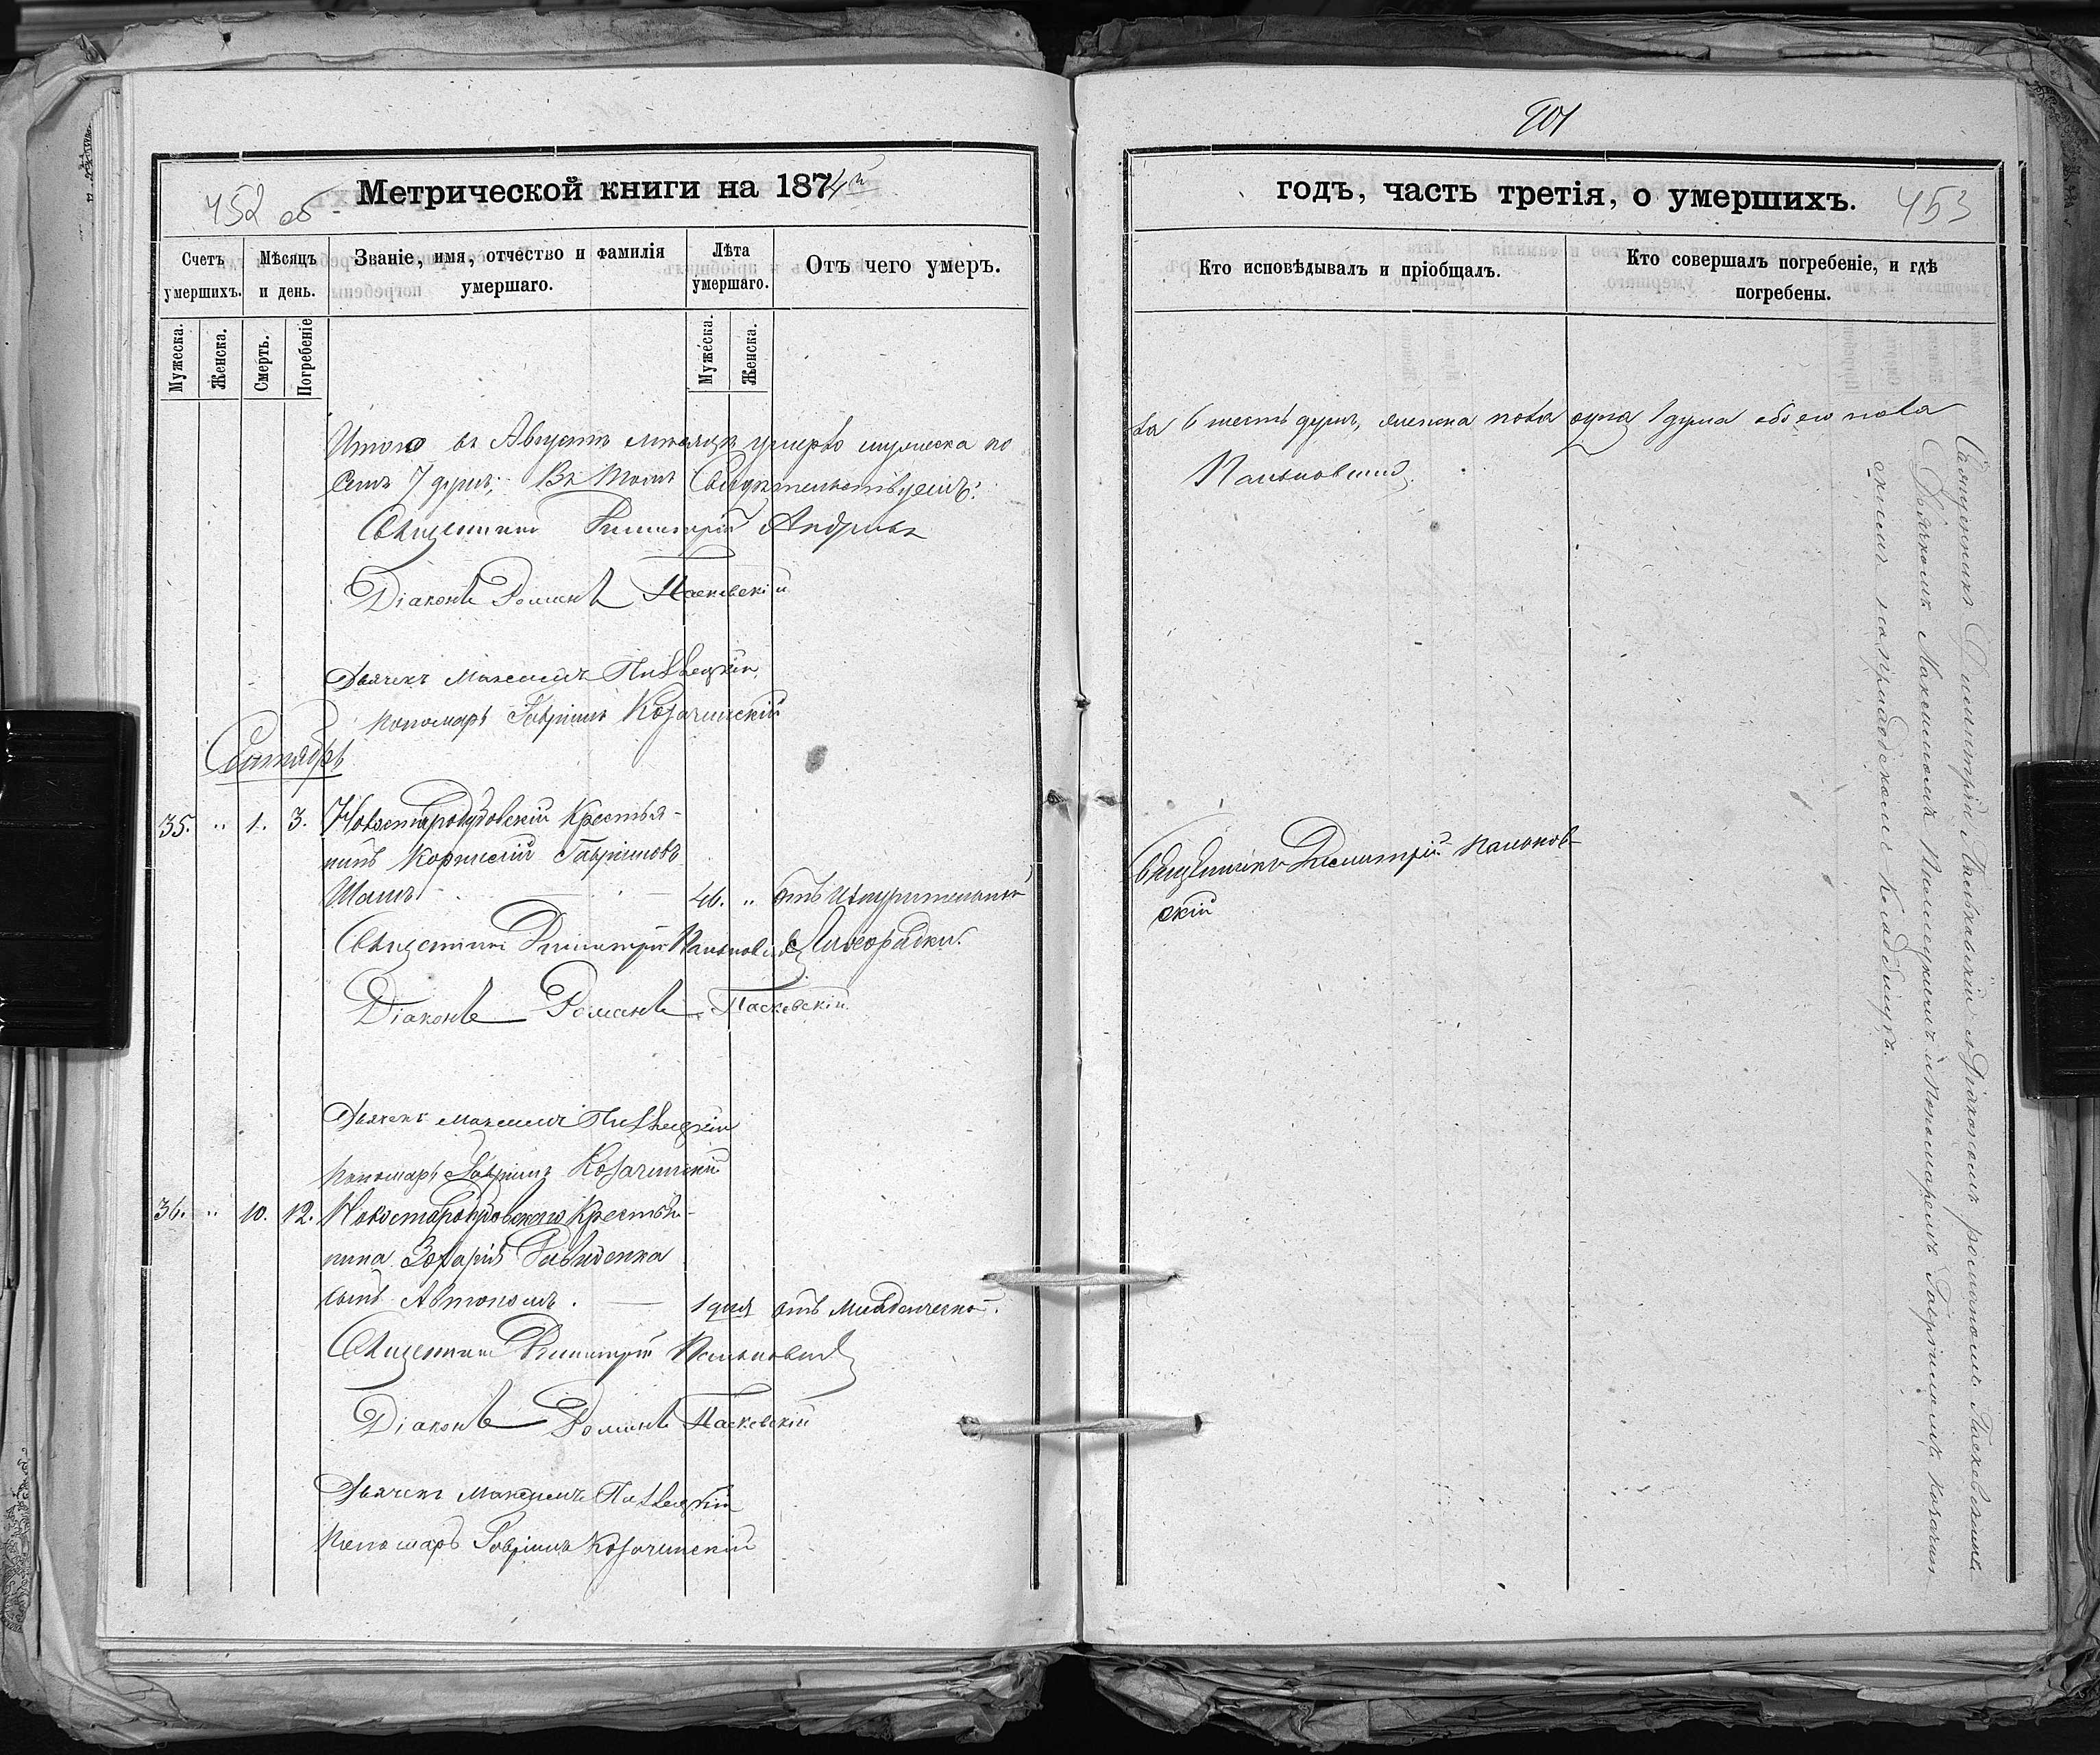 101
452 об
Метрической книги на 1874й
годъ, часть третія, о умершихъ.
453
Счетъ умершихъ.
Мѣсяцъ и день.
Званіе, имя, отчество и фамилія умершаго.
Лѣта умершаго.
Отъ чего умеръ.
Кто исповѣдывалъ и пріобщалъ.
Кто совершалъ погребеніе, и гдѣ погребены.
Мужеска.
Женска.
Смерть.
Погребеніе
Мужеска.
Женска.
Итого въ Августѣ мѣсяцѣ умерло мужеска по
ла 6 шесть душъ, женска пола одна 1 душа обоего пола
Семь 7 душъ; Въ томъ Свидѣтельствуемъ:
Священникъ Димитрій
Діаконъ Романъ Пасковскій
Дьячекъ Максимъ
пономарь Гавріилъ Козачинскій
Сентябрь
35. " 1. 3. Крестья-
нинъ Корнилій Гавріиловъ
46. " отъ Изнурительной
Священникъ Димитрій Лихорадки.
Діаконъ Романъ Пасковскій
Дьячекъ Максимъ
пономарь Гавріилъ Козачинскій
36. " 10. 12. Крестья-
нина Захарія Давиденка
сынъ Автономъ. 1 дня отъ младенческой.
Священникъ Димитрій
Діаконъ Романъ Пасковскій
Дьячекъ Максимъ
Пономарь Гавріилъ Козачинскій
Священникъ Димитрій
скій
Священникъ Димитрій съ Діакономъ Романомъ Пасковскимъ
Дьячкомъ Максимомъ и Пономаремъ Гавріиломъ Козачин-
скимъ на приходскомъ Кладбищѣ.